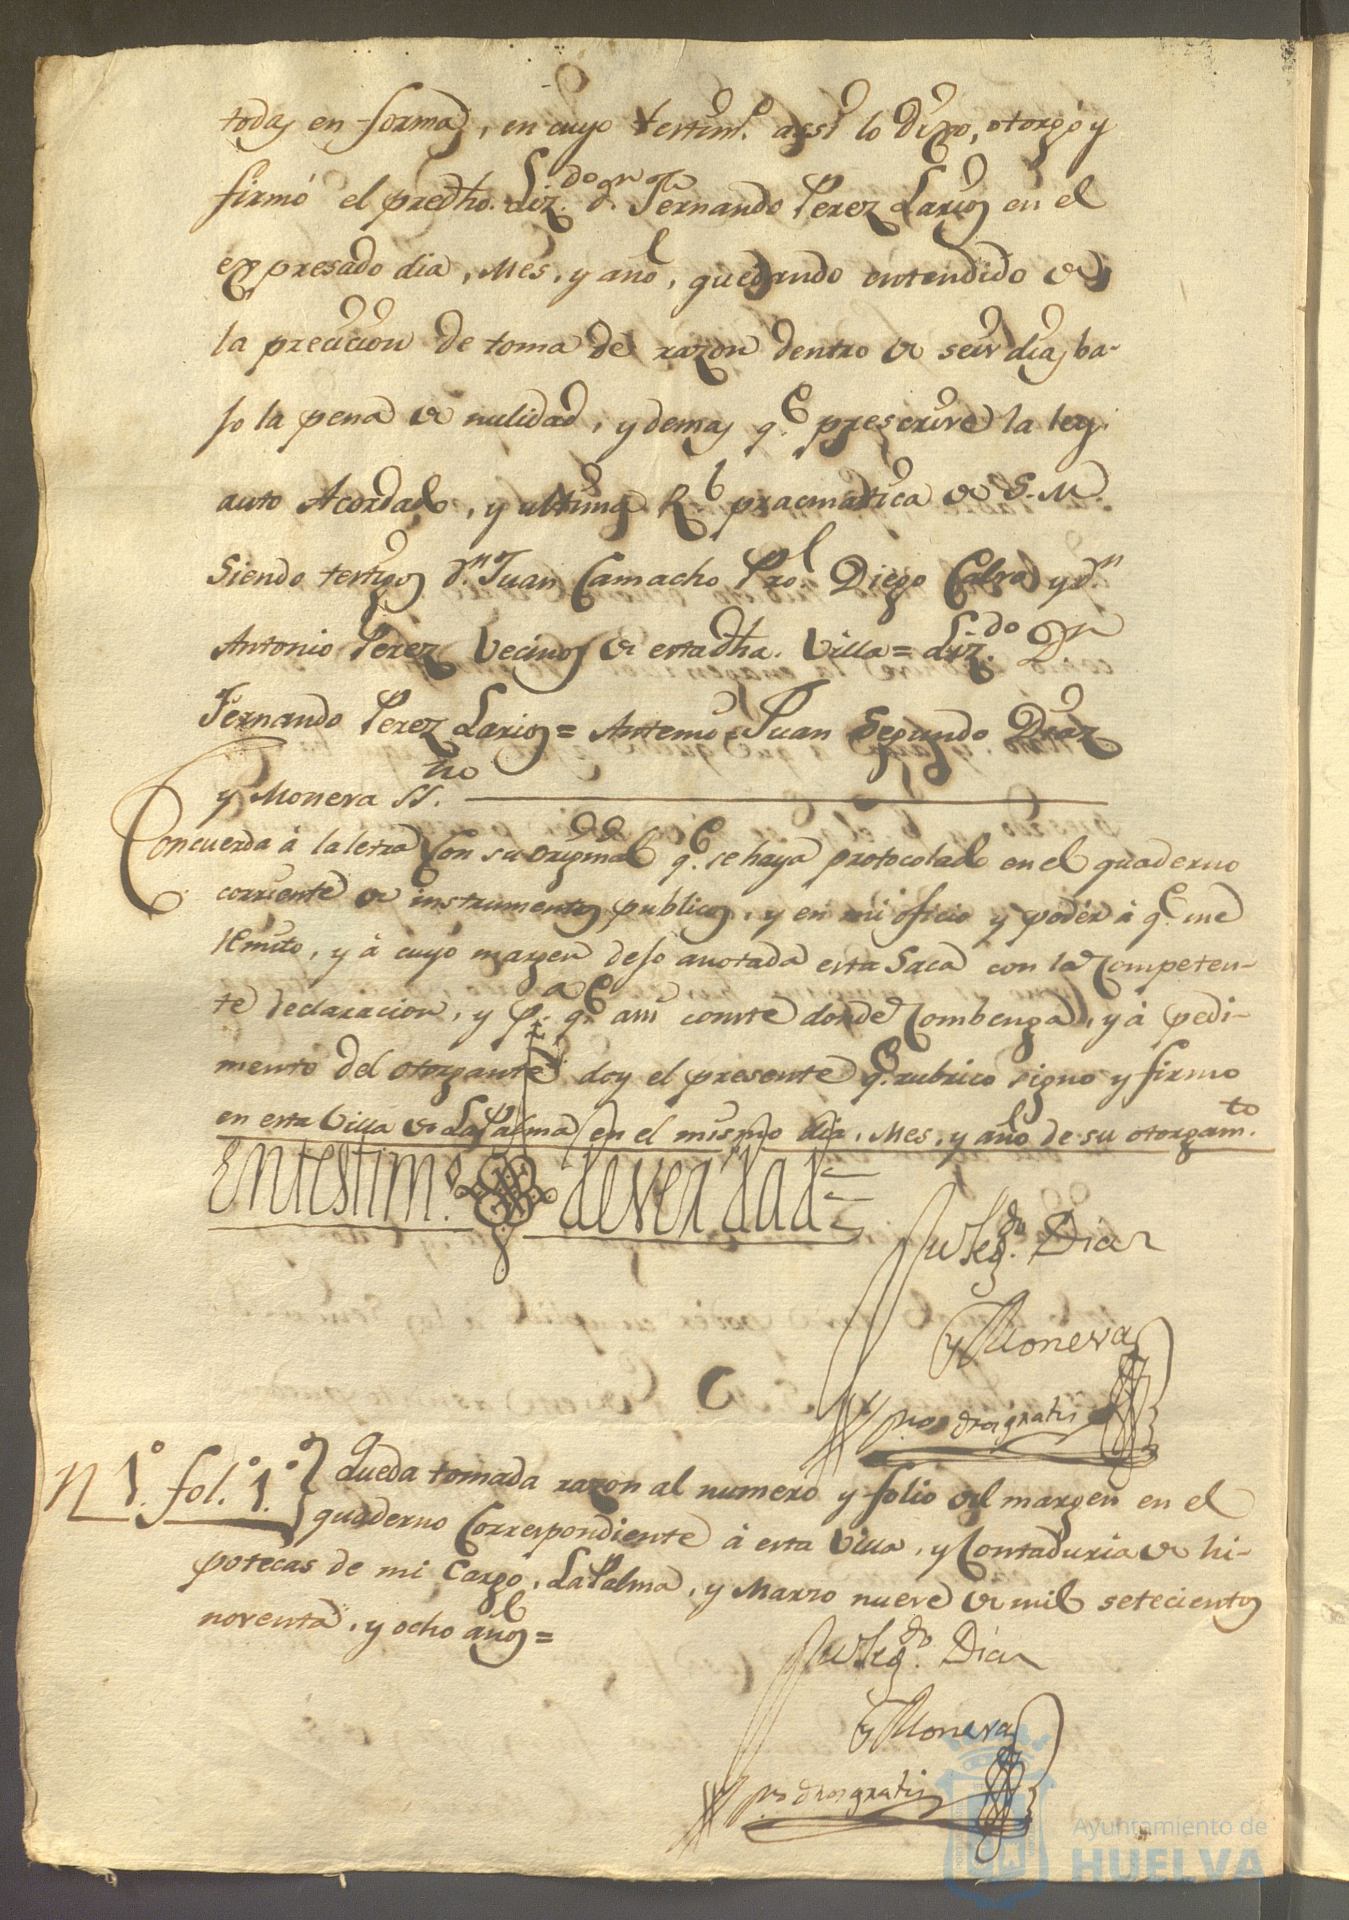 todas en forma, en cuyo testim.º assi lo Dixo, otorgó y
firmó el predho. Liz.do dn Fernando Perez Larios en el
expresado dia, Mes, y año, quedando entendido de
la precicion de toma de razon dentro de seis dias ba-
jo la pena de nulidad, y demas q.e prescrive la ley
auto Acordado, y ultima R.l pracmatica de S. M.
Siendo testigos d.n Juan Camacho Pro. Diego Calvo y d.n
Antonio Perez Vecinos de esta dha. Villa = Liz.do Dn
Fernando Perez Larios = Antemi Juan Segundo Diaz
y Moneva SS.no
Concuerda á la letra Con su original q.e se haya protocolado en el quaderno
corriente de instrumentos publicos, y en mi oficio y poder á q.e me
remito, y á cuyo margen dejo anotada esta Saca con la Competen-
te declaracion, y p.a q.e assi conste donde Combenga, y á pedi-
mento del otorgante doy el presente q.e rubrico signo y firmo
en esta Villa de La Palma en el mismo dia, Mes, y año de su otorgam.to
En testim.º de verdad =
Ju Seg.do Diaz
y Moneva
dros gratis
N 1.º fol.º 1.º } Queda tomada razon al numero y folio del margen en el
quaderno Correspondiente á esta Villa, y Contaduria de hi-
potecas de mi Cargo, La Palma, y Marzo nueve de mil setecientos
noventa, y ocho años =
Ju Seg.do Diaz
y Moneva
dros gratis
Ayuntamiento de
HUELVA